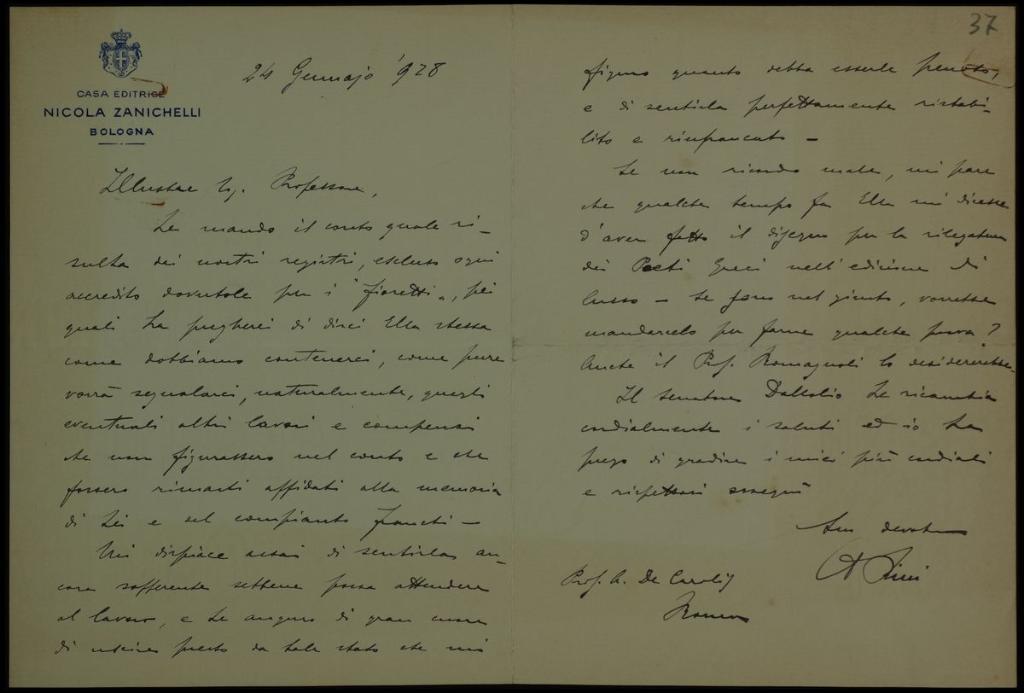 37
CASA EDITRICE
NICOLA ZANICHELLI
BOLOGNA
24 Gennajo '928
Illustre Sig. Professore,
Le mando il conto quale ri-
sulta dei nostri registri, escluso ogni
accredito dovutole per i "Fioretti", pei
quali La pregherei di dirci Ella stessa
come dobbiamo contenerci, come pure
vorrà segnalarci, naturalmente, quegli
eventuali altri lavori e compensi
che non figurassero nel conto e che
fossero rimasti affidati alla memoria
di Lei e del compianto Franchi -
Mi dispiace assai di sentirla an-
cora sofferente sebbene possa attendere
al lavoro, e Le auguro di gran cuore
di uscire presto da tale stato che mi
figuro quanto debba esserle penoso,
e di sentirla perfettamente ristabi-
lito e rinfrancato -
Se non ricordo male, mi pare
che qualche tempo fa Ella mi dicesse
d'aver fatto il disegno per la rilegatura
dei Poeti Greci nell'edizione di
lusso - Se sono nel giusto, vorrebbe
mandarcelo per farne qualche prova?
Anche il Prof. Romagnoli lo desidererebbe.
Il senatore Dallolio Le ricambia
cordialmente i saluti ed io La
prego di gradire i miei più cordiali
e rispettosi ossequi
Suo devoto
Prof. A. De Carolis
Roma